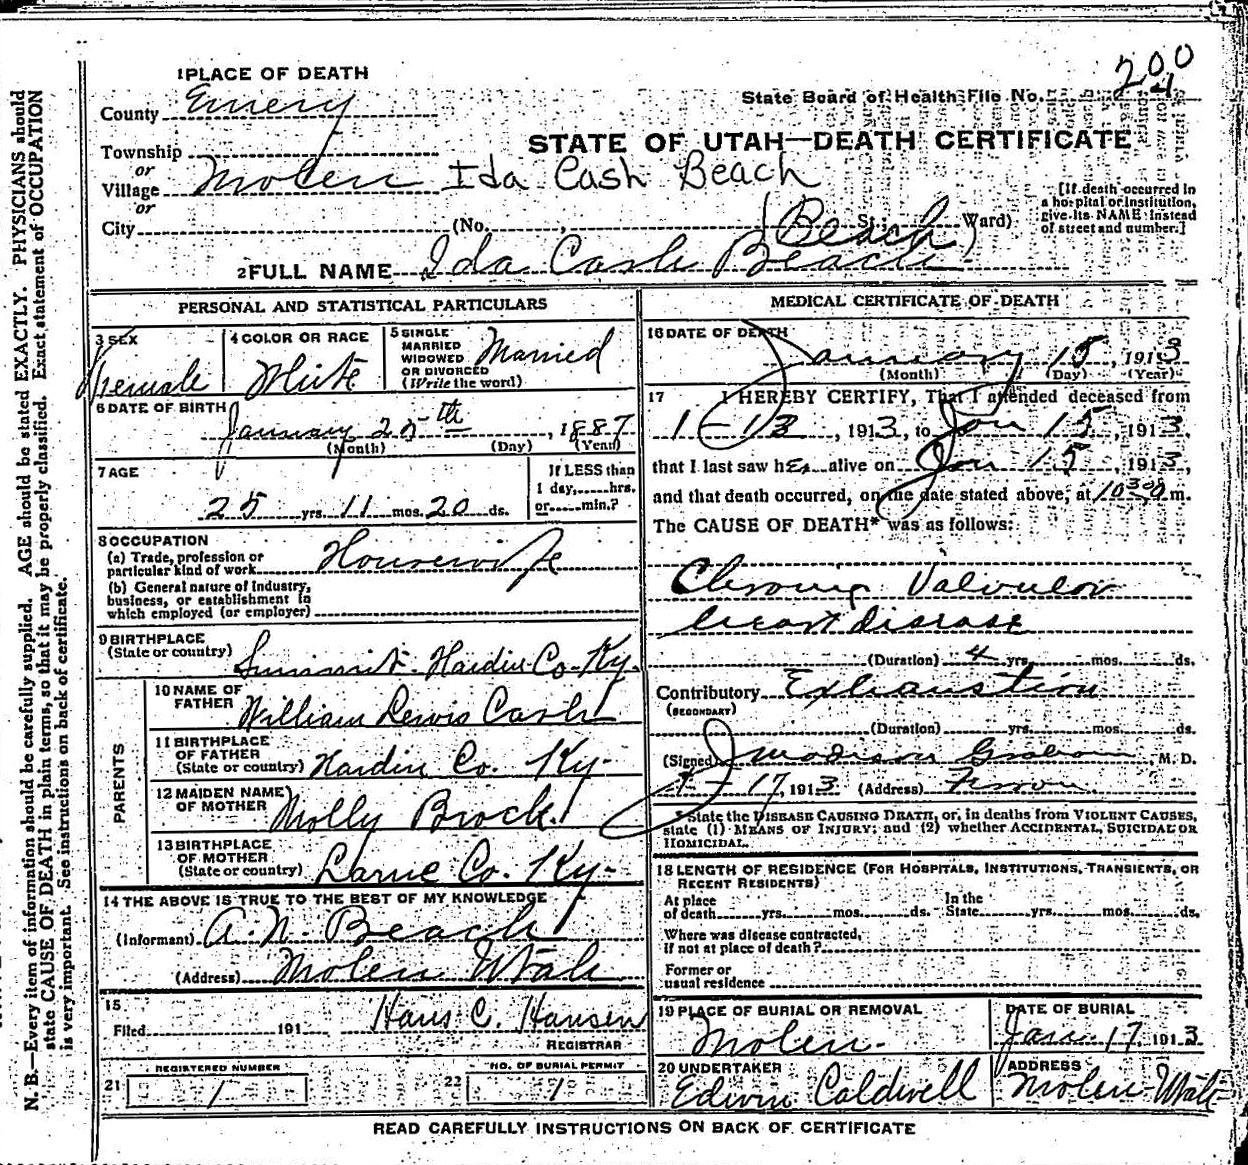 1 PLACE OF DEATH
200
4
County Emery
State Board of Health File No.
STATE OF UTAH—DEATH CERTIFICATE
Township
or
Village Molen
Ida Cash Beach
or
City (No. , St.; Ward)
(Beach)
[If death occurred in
a hospital or institution,
give its NAME instead
of street and number.]
2 FULL NAME Ida Cash Beach
PERSONAL AND STATISTICAL PARTICULARS
3 SEX
Female
4 COLOR OR RACE
White
5 SINGLE
MARRIED
WIDOWED
OR DIVORCED
(Write the word)
Married
6 DATE OF BIRTH
January 25th, 1887
(Month) (Day) (Year)
7 AGE
25 yrs. 11 mos. 20 ds.
If LESS than
1 day, hrs.
or min.?
8 OCCUPATION
(a) Trade, profession or
particular kind of work Housewife
(b) General nature of industry,
business, or establishment in
which employed (or employer)
9 BIRTHPLACE
(State or country) Summit Hardin Co Ky.
PARENTS
10 NAME OF
FATHER William Lewis Cash
11 BIRTHPLACE
OF FATHER
(State or country) Hardin Co. Ky.
12 MAIDEN NAME
OF MOTHER Molly Brock.
13 BIRTHPLACE
OF MOTHER
(State or country) Larue Co. Ky.
14 THE ABOVE IS TRUE TO THE BEST OF MY KNOWLEDGE
(Informant) A. N. Beach
(Address) Molen Utah
15
Filed 191 Hans C. Hansen
REGISTRAR
21 REGISTERED NUMBER
1
22 NO. OF BURIAL PERMIT
1
MEDICAL CERTIFICATE OF DEATH
16 DATE OF DEATH
January 15, 1913
(Month) (Day) (Year)
17 I HEREBY CERTIFY, That I attended deceased from
1-13, 1913, to Jan 15, 1913,
that I last saw her alive on Jan 15, 1913,
and that death occurred, on the date stated above, at 10 30 m.
The CAUSE OF DEATH* was as follows:
Chronic Valvular
heart disease
(Duration) 4 yrs. mos. ds.
Contributory Exhaustion
(SECONDARY)
(Duration) yrs. mos. ds.
(Signed) J Madison Graham M. D.
1 17, 1913 (Address) Ferron
* State the DISEASE CAUSING DEATH, or, in deaths from VIOLENT CAUSES,
state (1) MEANS OF INJURY; and (2) whether ACCIDENTAL, SUICIDAL OR
HOMICIDAL.
18 LENGTH OF RESIDENCE (FOR HOSPITALS, INSTITUTIONS, TRANSIENTS, OR
RECENT RESIDENTS)
At place
of death yrs. mos. ds.
In the
State yrs. mos. ds.
Where was disease contracted,
if not at place of death?
Former or
usual residence
19 PLACE OF BURIAL OR REMOVAL
Molen.
DATE OF BURIAL
Jan. 17, 1913
20 UNDERTAKER
Edwin Caldwell
ADDRESS
Molen Utah
READ CAREFULLY INSTRUCTIONS ON BACK OF CERTIFICATE
N. B.—Every item of information should be carefully supplied. AGE should be stated EXACTLY. PHYSICIANS should
state CAUSE OF DEATH in plain terms, so that it may be properly classified. Exact statement of OCCUPATION
is very important. See instructions on back of certificate.